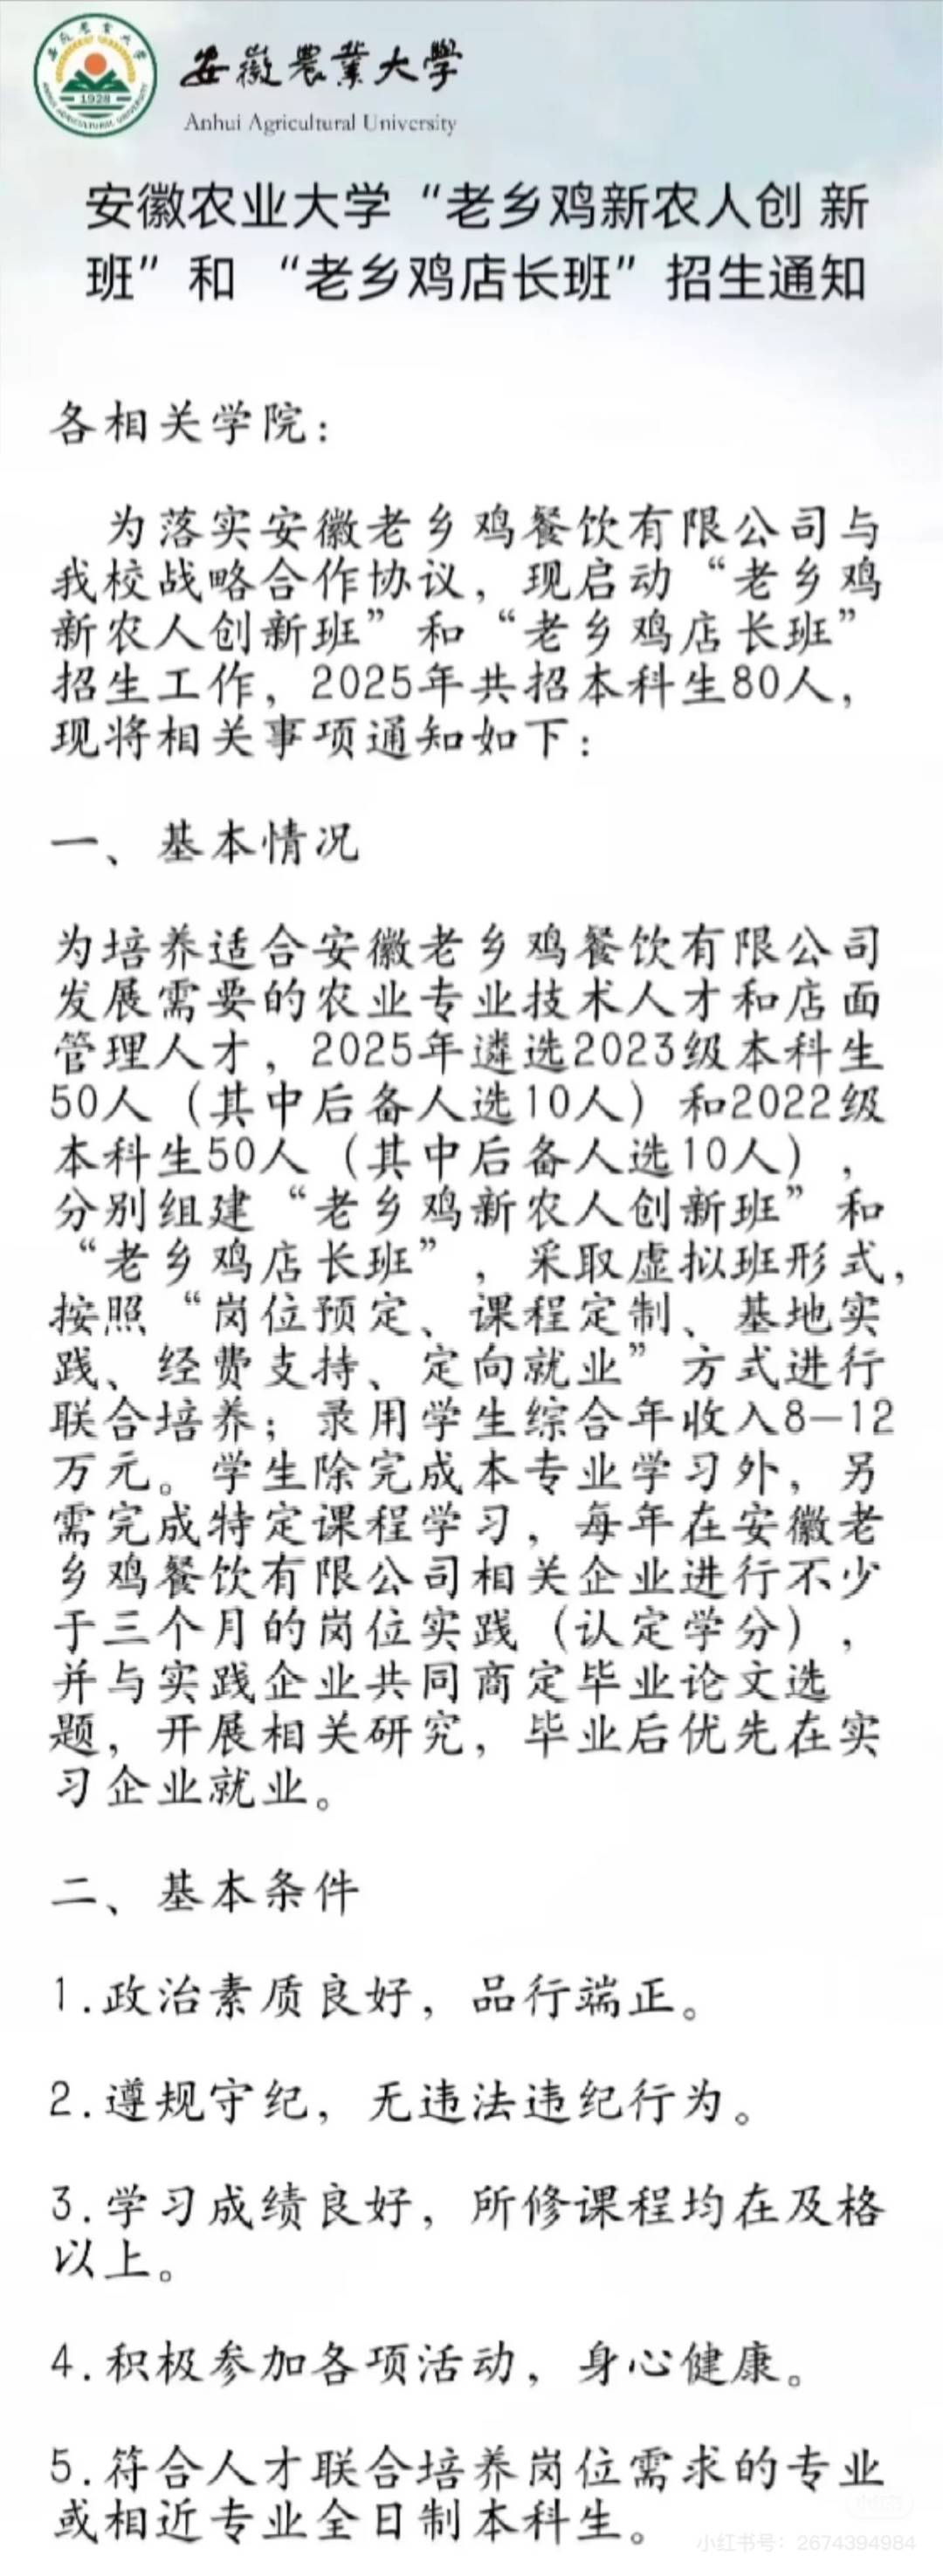 安徽農業大學
Anhui Agricultural University
1928
安徽农业大学“老乡鸡新农人创 新
班”和 “老乡鸡店长班”招生通知
各相关学院：
为落实安徽老乡鸡餐饮有限公司与
我校战略合作协议，现启动“老乡鸡
新农人创新班”和“老乡鸡店长班”
招生工作，2025年共招本科生80人，
现将相关事项通知如下：
一、基本情况
为培养适合安徽老乡鸡餐饮有限公司
发展需要的农业专业技术人才和店面
管理人才，2025年遴选2023级本科生
50人（其中后备人选10人）和2022级
本科生50人（其中后备人选10人），
分别组建“老乡鸡新农人创新班”和
“老乡鸡店长班”，采取虚拟班形式，
按照“岗位预定、课程定制、基地实
践、经费支持、定向就业”方式进行
联合培养；录用学生综合年收入8—12
万元。学生除完成本专业学习外，另
需完成特定课程学习，每年在安徽老
乡鸡餐饮有限公司相关企业进行不少
于三个月的岗位实践（认定学分），
并与实践企业共同商定毕业论文选
题，开展相关研究，毕业后优先在实
习企业就业。
二、基本条件
1.政治素质良好，品行端正。
2.遵规守纪，无违法违纪行为。
3.学习成绩良好，所修课程均在及格
以上。
4.积极参加各项活动，身心健康。
5.符合人才联合培养岗位需求的专业
或相近专业全日制本科生。
小红书号：2674394984